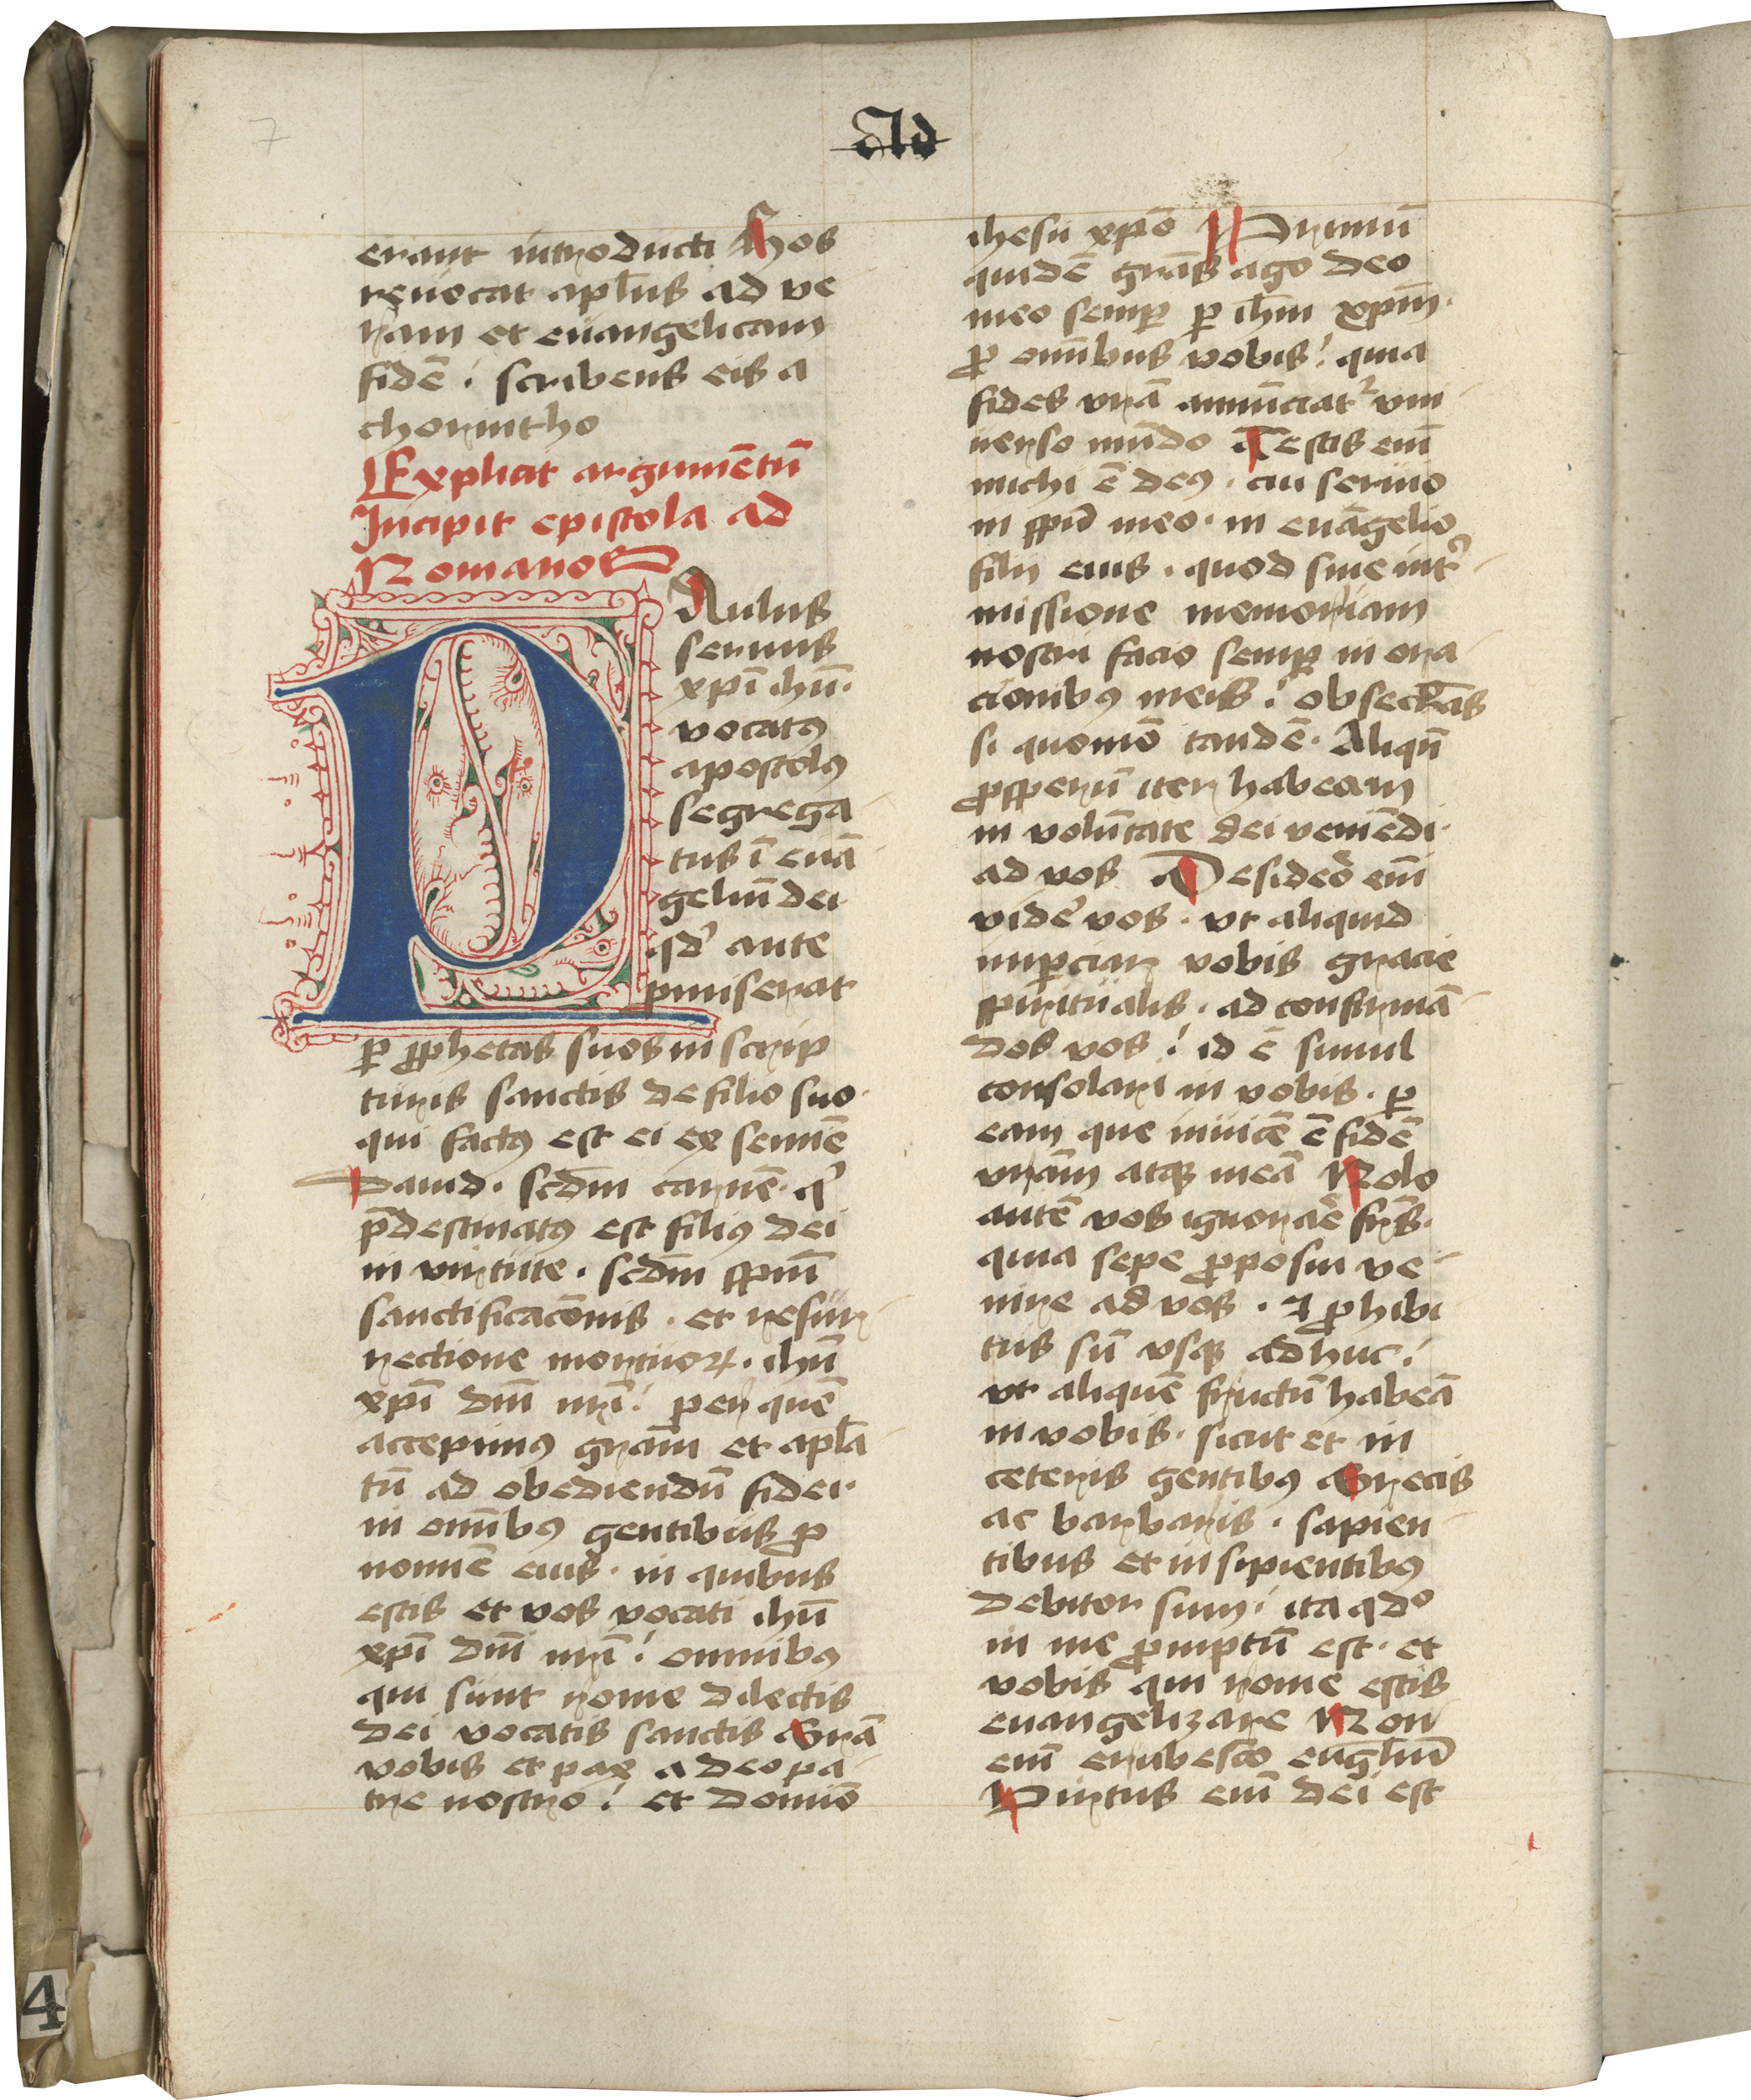 7
Ad
erant introducti Hos
reuocat apl̄us ad ve
ram et euangelicam
fidē : scribens eis a
chorintho
Explicit argumētū
Incipit epistola ad
Romanoꝝ
PAulus
seruus
xp̄i ihū·
vocatꝰ
apostolꝰ
segrega
tus ī euā
geliū dei
qd' ante
pmiserat
ꝑ ꝓphetas suos in scrip
turis sanctis de filio suo·
qui factꝰ est ei ex semīe
Dauid · scd̄m carnē · q'
p̄destinatꝰ est filiꝰ dei
in virtute · scd̄m sp̄m
sanctificacōnis · et resur
rectione mortuoꝝ · ihū
xp̄i dn̄i nr̄i : per quē
accepimꝰ grām et apl̄a
tū ad obediendū fidei·
in om̄ibꝰ gentibus ꝓ
nomīe eius · in quibus
estis et vos vocati ihū
xp̄i dn̄i nr̄i : omnibꝰ
qui sunt rome dilectis
dei vocatis sanctis Grā
vobis et pax a deo pa
tre nostro : et domīo
ihesu xp̄o Primū
quidē grās ago deo
meo semꝑ ꝑ ihm̄ xp̄m·
ꝓ om̄ibus vobis : quia
fides vr̄a annūciat᷑ vni
uerso mūdo Testis em̄
michi ē deꝰ · cui seruio
in sp̄u meo · in euāgelio
filij eius · quod sine int'
missione memoriam
vostri facio semꝑ in ora
cionibꝰ meis : obsecrās
si quomō tandē · Aliqn̄
ꝓsperū iter habeam
in volūtate dei veniēdi·
ad vos Desidero em̄
videre vos · vt aliquid
imꝑciar vobis gracie
spiritualis · ad confirmā
dos vos : id ē simul
consolari in vobis · ꝑ
eam que inuicē ē fidē
vrām atqꝫ meā Nolo
autē vos ignorare frs̄·
quia sepe ꝓposui ve
nire ad vos · ⁊ ꝓhibi
tus sū vsqꝫ adhuc :
vt aliquē fructū habeā
in vobis · sicut et in
ceteris gentibꝰ Grecis
ac barbaris · sapien
tibus et insipientibꝰ
debitor sum : ita qdº
in me ꝓmptū est · et
vobis qui rome estis
euangelizare Non
em̄ erubesco eūgliū
Virtus em̄ dei est
4